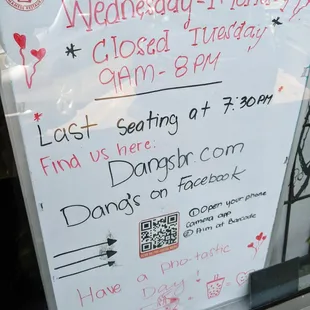 Wednesday - Monday
* Closed Tuesday *
9AM - 8PM
* Last seating at 7:30PM
Find us here:
Dangsbr.com
Dang's on Facebook
① Open your phone
camera app
② Aim at Barcode
Have a pho-tastic
Day!